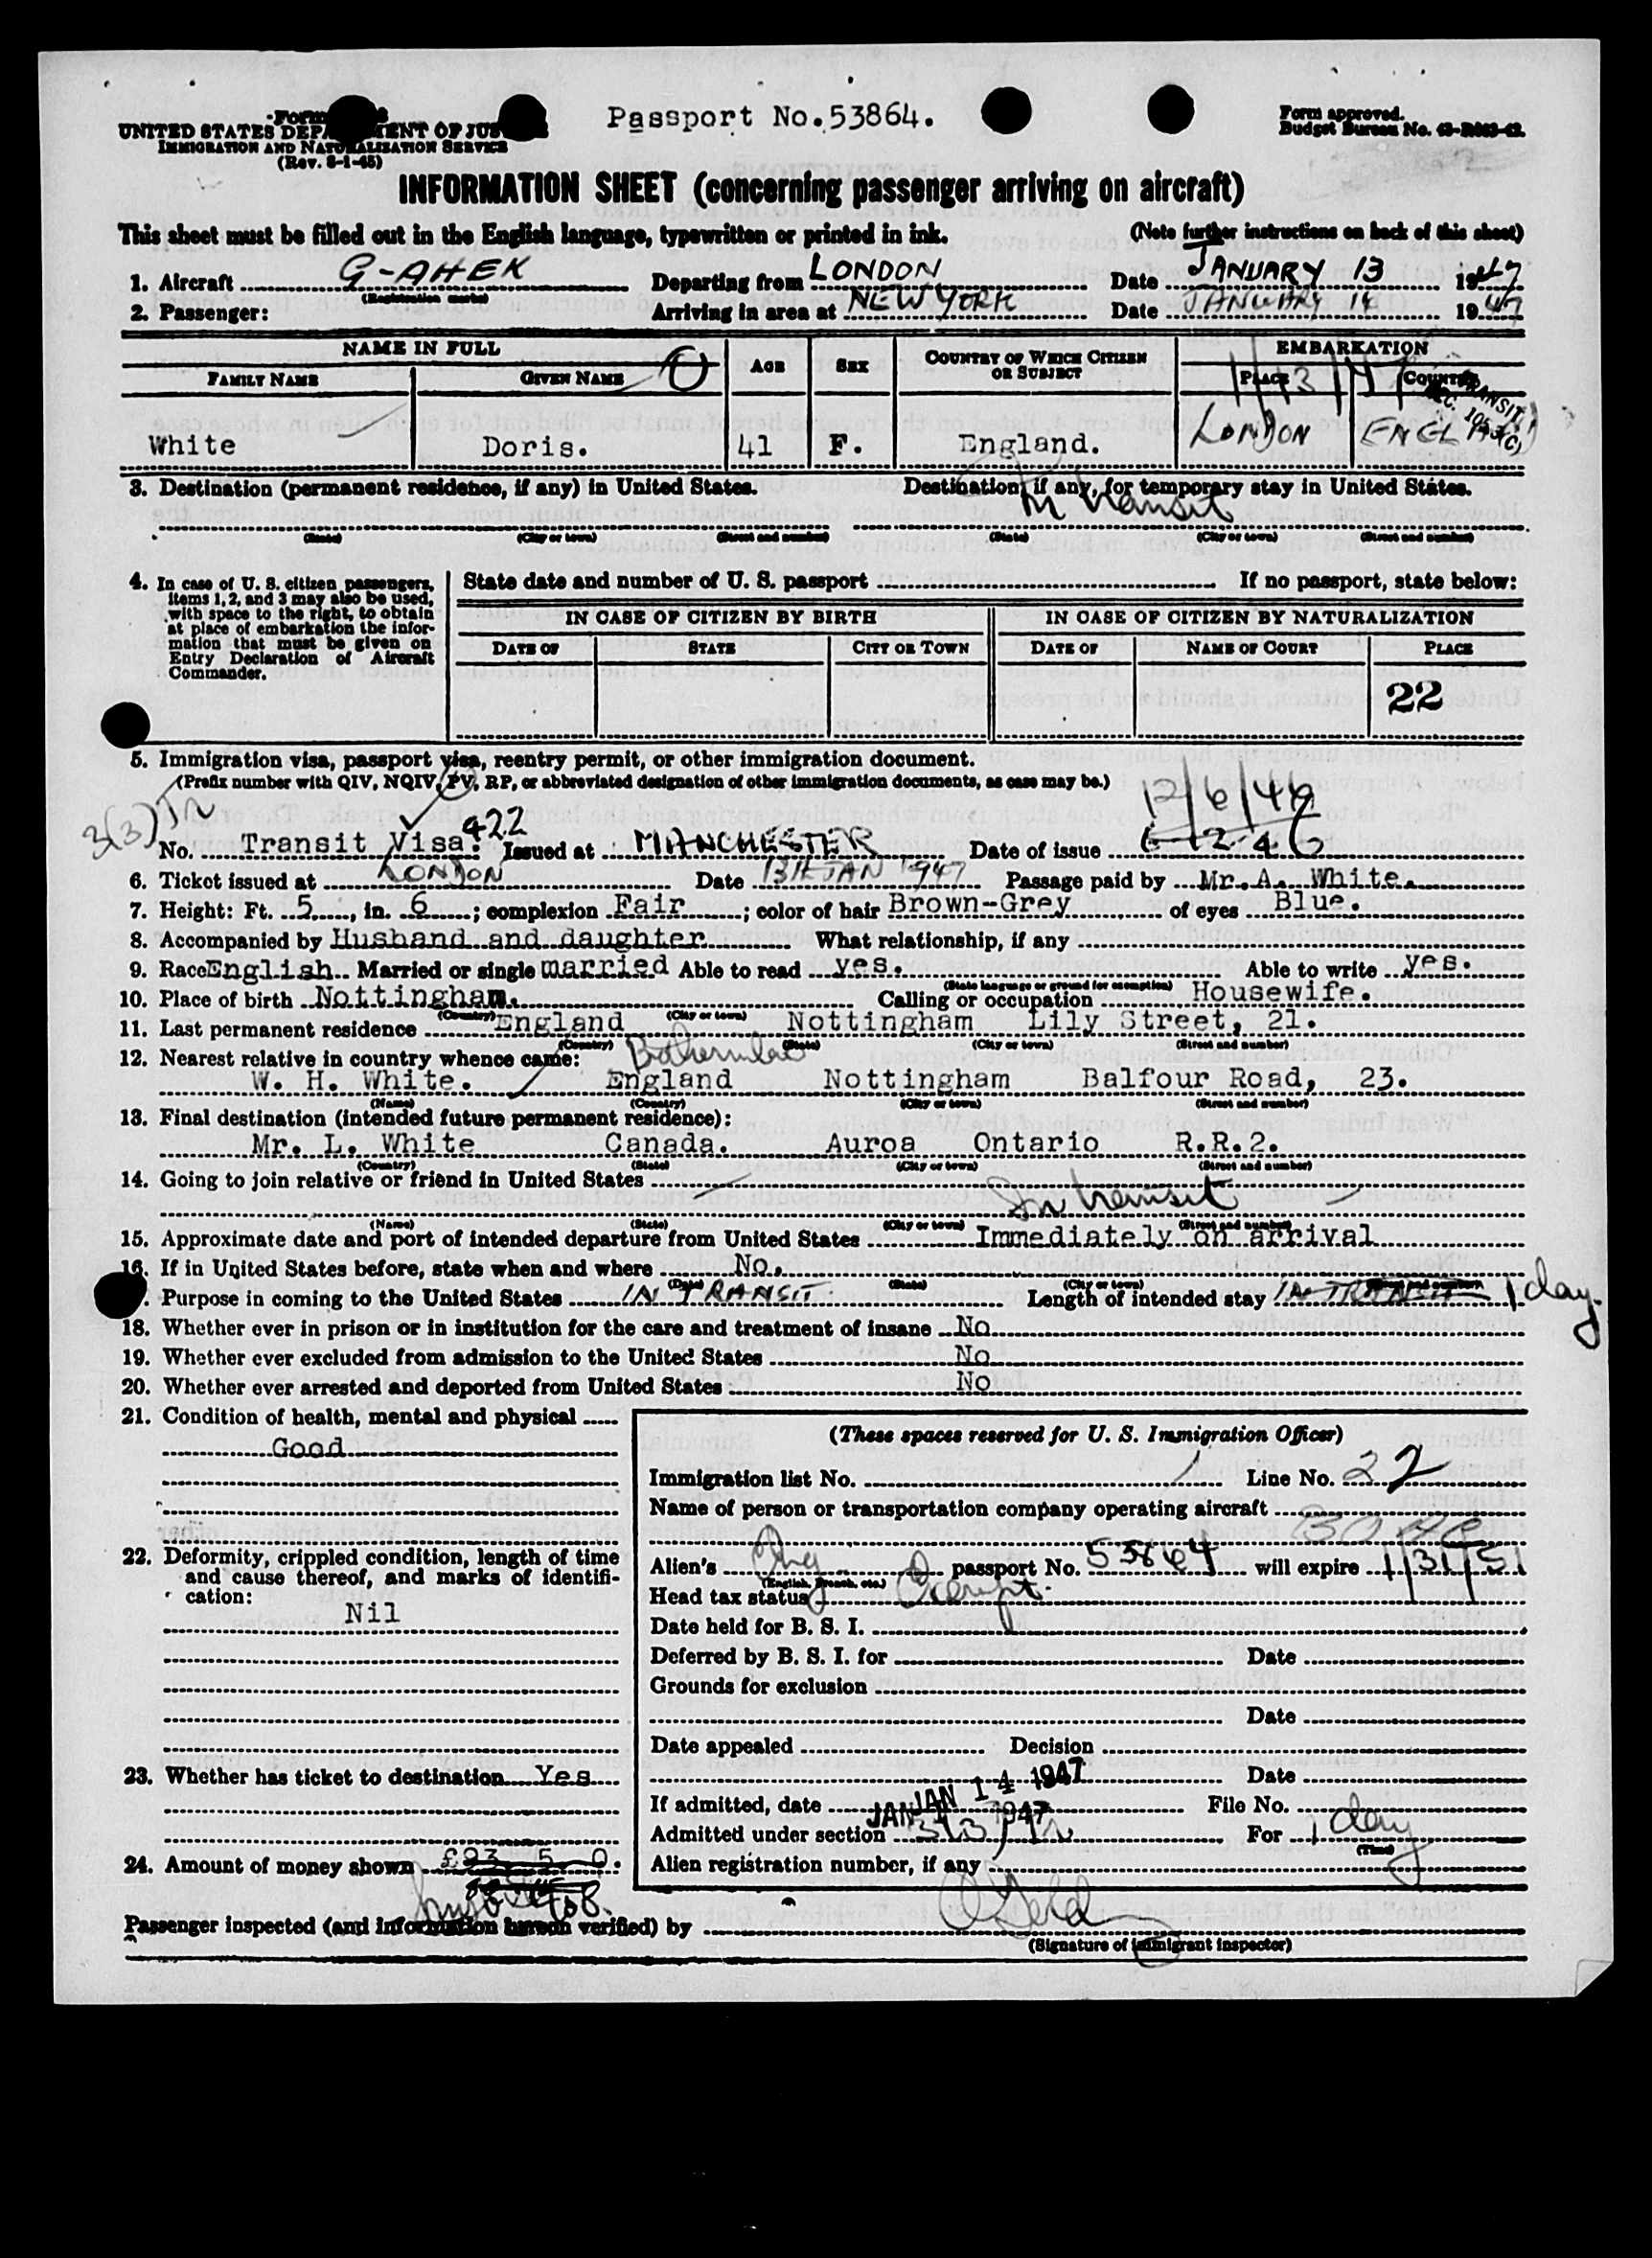 Passport No.53864.
Form approved.
Budget Bureau No.
UNITED STATES DEPARTMENT OF JUS
IMMIGRATION AND NATURALIZATION SERVICE
(Rev. 8-1-45)
INFORMATION SHEET (concerning passenger arriving on aircraft)
This sheet must be filled out in the English language, typewritten or printed in ink. (Note further instructions on back of this sheet)
1. Aircraft G-AHEK Departing from LONDON Date JANUARY 13 1947
(Registration marks)
2. Passenger: Arriving in area at NEW YORK Date JANUARY 14 1947
NAME IN FULL AGE SEX COUNTRY OF WHICH CITIZEN OR SUBJECT EMBARKATION
FAMILY NAME GIVEN NAME PLACE COUNTRY
1/13/47
TRANSIT
White Doris. 41 F. England. LONDON ENGLAND
3. Destination (permanent residence, if any) in United States. Destination, if any, for temporary stay in United States.
In transit
(State) (City or town) (Street and number) (State) (City or town) (Street and number)
4. In case of U. S. citizen passengers, items 1, 2, and 3 may also be used, with space to the right, to obtain at place of embarkation the information that must be given on Entry Declaration of Aircraft Commander.
State date and number of U. S. passport If no passport, state below:
IN CASE OF CITIZEN BY BIRTH IN CASE OF CITIZEN BY NATURALIZATION
DATE OF STATE CITY OR TOWN DATE OF NAME OF COURT PLACE
22
5. Immigration visa, passport visa, reentry permit, or other immigration document.
(Prefix number with QIV, NQIV, PV, RP, or abbreviated designation of other immigration documents, as case may be.)
3(3) 12/6/46
No. Transit Visa. 422 Issued at MANCHESTER Date of issue 6-12-46
6. Ticket issued at LONDON Date 13th JAN 1947 Passage paid by Mr. A. White.
7. Height: Ft. 5, in. 6; complexion Fair; color of hair Brown-Grey of eyes Blue.
8. Accompanied by Husband and daughter What relationship, if any
9. Race English Married or single married Able to read yes. Able to write yes.
(State language or ground for exemption)
10. Place of birth Nottingham. Calling or occupation Housewife.
(Country) (City or town)
11. Last permanent residence England Nottingham Lily Street, 21.
(Country) (State) (City or town) (Street and number)
12. Nearest relative in country whence came:
W. H. White. England Nottingham Balfour Road, 23.
(Name) (Country) (City or town) (Street and number)
13. Final destination (intended future permanent residence):
Mr. L. White Canada. Auroa Ontario R.R.2.
(Country) (State) (City or town) (Street and number)
14. Going to join relative or friend in United States
In transit
(Name) (State) (City or town) (Street and number)
15. Approximate date and port of intended departure from United States Immediately on arrival
16. If in United States before, state when and where No.
(Date) (State) (City or town)
Purpose in coming to the United States IN TRANSIT Length of intended stay IN TRANSIT 1 day.
18. Whether ever in prison or in institution for the care and treatment of insane No
19. Whether ever excluded from admission to the United States No
20. Whether ever arrested and deported from United States No
21. Condition of health, mental and physical
Good
(These spaces reserved for U. S. Immigration Officer)
Immigration list No. 1 Line No. 22
Name of person or transportation company operating aircraft
BOAC
22. Deformity, crippled condition, length of time and cause thereof, and marks of identification:
Nil
Alien's Eng passport No. 53864 will expire 1/31/51
(English, French, etc.)
Head tax status Exempt
Date held for B. S. I.
Deferred by B. S. I. for Date
Grounds for exclusion
Date
Date appealed Decision
23. Whether has ticket to destination Yes
Date
JAN 14 1947
If admitted, date File No.
Admitted under section 3(3) For 1 day
(Time)
24. Amount of money shown £93 5 0.
Alien registration number, if any
Passenger inspected (and information hereon verified) by
(Signature of immigrant inspector)